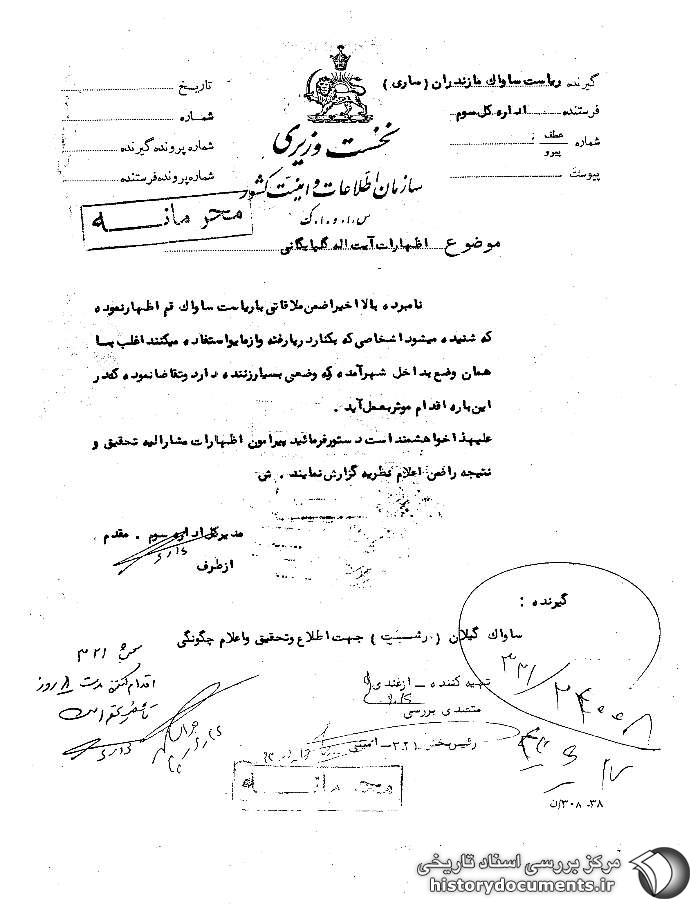 گیرنده ریاست ساواك مازندران (ساری)
فرستنده اداره کل سوم
شماره عطف پیرو :
پیوست
تاریخ
شماره
شماره پرونده گیرنده
شماره پرونده فرستنده
نخست وزیری
سازمان اطلاعات و امنیت کشور
س.ا.و.ا.ک
محرمانه
موضوع اظهارات آیت اله گلپایگانی
نامبرده بالا اخیرا ضمن ملاقاتی با ریاست ساواك قم اظهار نموده
که شنیده میشود اشخاصی که بکنار دریا رفته و از مایو استفاده میکنند اغلب بسا
همان وضع بداخل شهر آمده که وضعی بسیار زننده دارد و تقاضا نموده که در
این باره اقدام موثر بعمل آید .
علیهذا خواهشمند است دستور فرمائید پیرامون اظهارات مشارالیه تحقیق و
نتیجه را ضمن اعلام نظریه گزارش نمایند . ش
مدیرکل اداره سوم . مقدم
از طرف
گیرنده :
ساواك گیلان (رشت) جهت اطلاع و تحقیق و اعلام چگونگی
۳۲۱/۲۴۰۰۸
تهیه کننده - ازغندی
متصدی بررسی
رئیس بخش ۳۲۱ - امینی
۳۲۱
اقدام کنن مدت ۸ روز
محرمانه
۳۸-۳۰۸/ن
مرکز بررسی اسناد تاریخی
historydocuments.ir